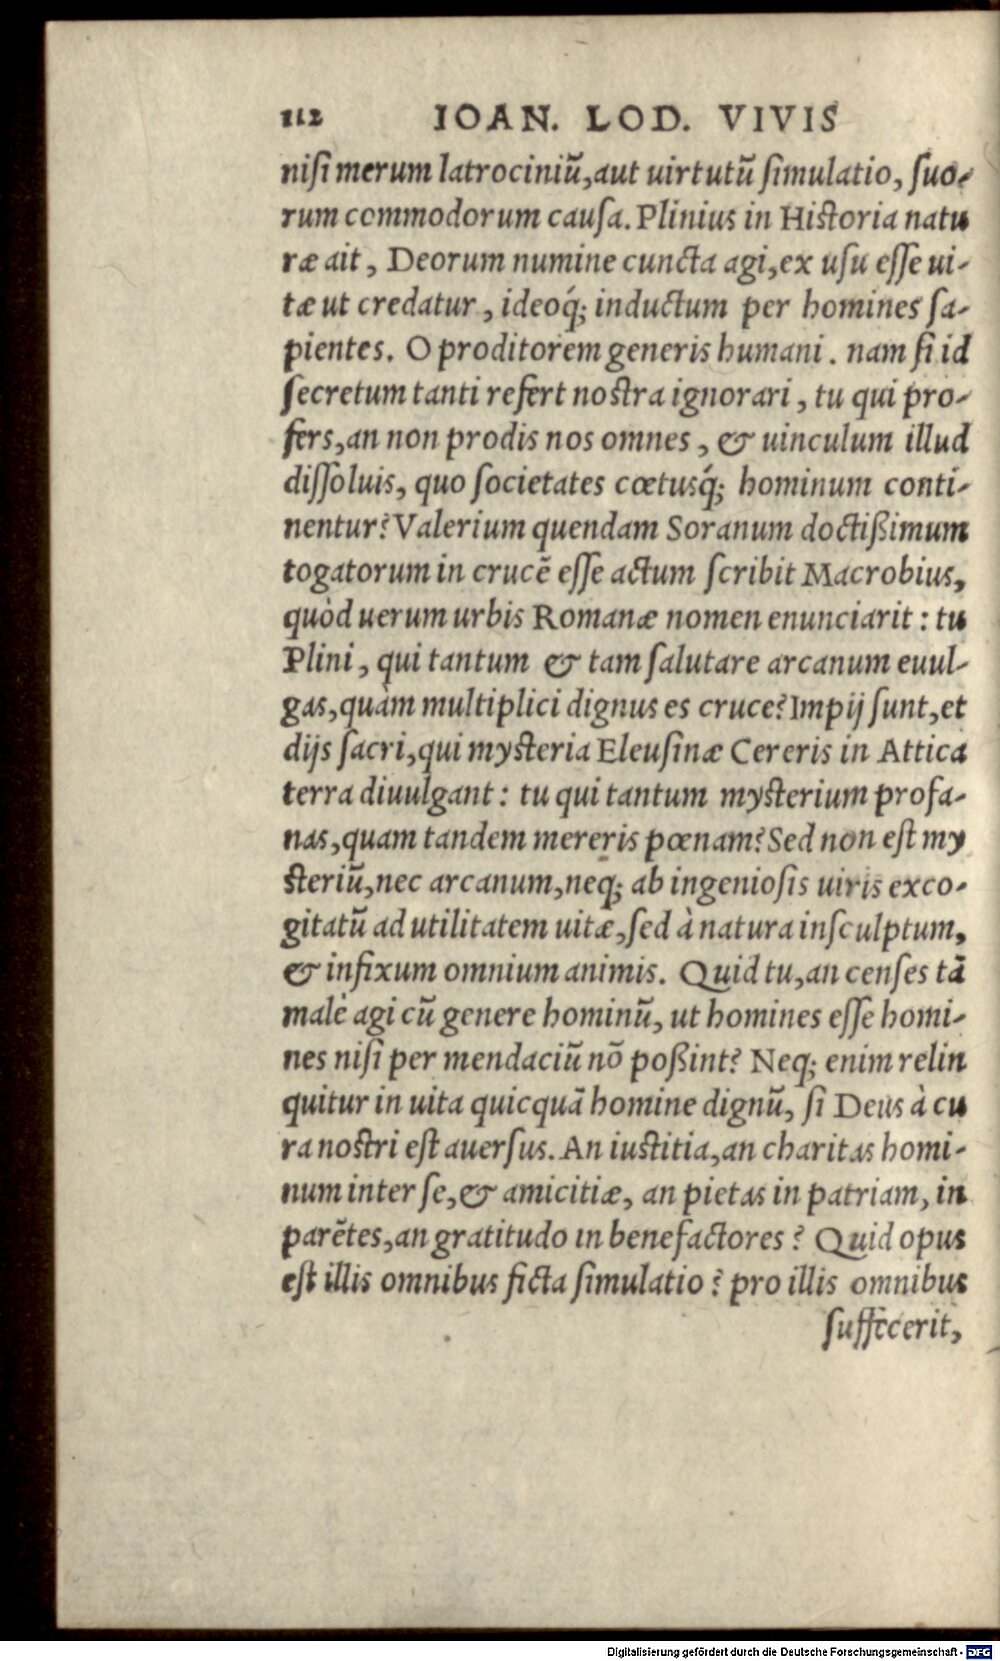 112 IOAN. LOD. VIVIS
niſi merum latrociniũ, aut uirtutũ ſimulatio, ſuo-
rum commodorum cauſa. Plinius in Hiſtoria natu
ræ ait, Deorum numine cuncta agi, ex uſu eſſe ui-
tæ ut credatur, ideoq́; inductum per homines ſa-
pientes. O proditorem generis humani. nam ſi id
ſecretum tanti refert noſtra ignorari, tu qui pro-
fers, an non prodis nos omnes, & uinculum illud
diſſoluis, quo ſocietates cœtusq́; hominum conti-
nentur? Valerium quendam Soranum doctißimum
togatorum in crucẽ eſſe actum ſcribit Macrobius,
quòd uerum urbis Romanæ nomen enunciarit: tu
Plini, qui tantum & tam ſalutare arcanum euul-
gas, quàm multiplici dignus es cruce? Impij ſunt, et
dijs ſacri, qui myſteria Eleuſinæ Cereris in Attica
terra diuulgant: tu qui tantum myſterium profa-
nas, quam tandem mereris pœnam? Sed non eſt my
ſteriũ, nec arcanum, neq; ab ingenioſis uiris exco-
gitatũ ad utilitatem uitæ, ſed à natura inſculptum,
& infixum omnium animis. Quid tu, an cenſes tã
malè agi cũ genere hominũ, ut homines eſſe homi-
nes niſi per mendaciũ nõ poßint? Neq; enim relin
quitur in uita quicquã homine dignũ, ſi Deus à cu
ra noſtri eſt auerſus. An iuſtitia, an charitas homi-
num inter ſe, & amicitiæ, an pietas in patriam, in
parẽtes, an gratitudo in benefactores? Quid opus
eſt illis omnibus ficta ſimulatio? pro illis omnibus
ſuffecerit,
Digitalisierung gefördert durch die Deutsche Forschungsgemeinschaft - DFG